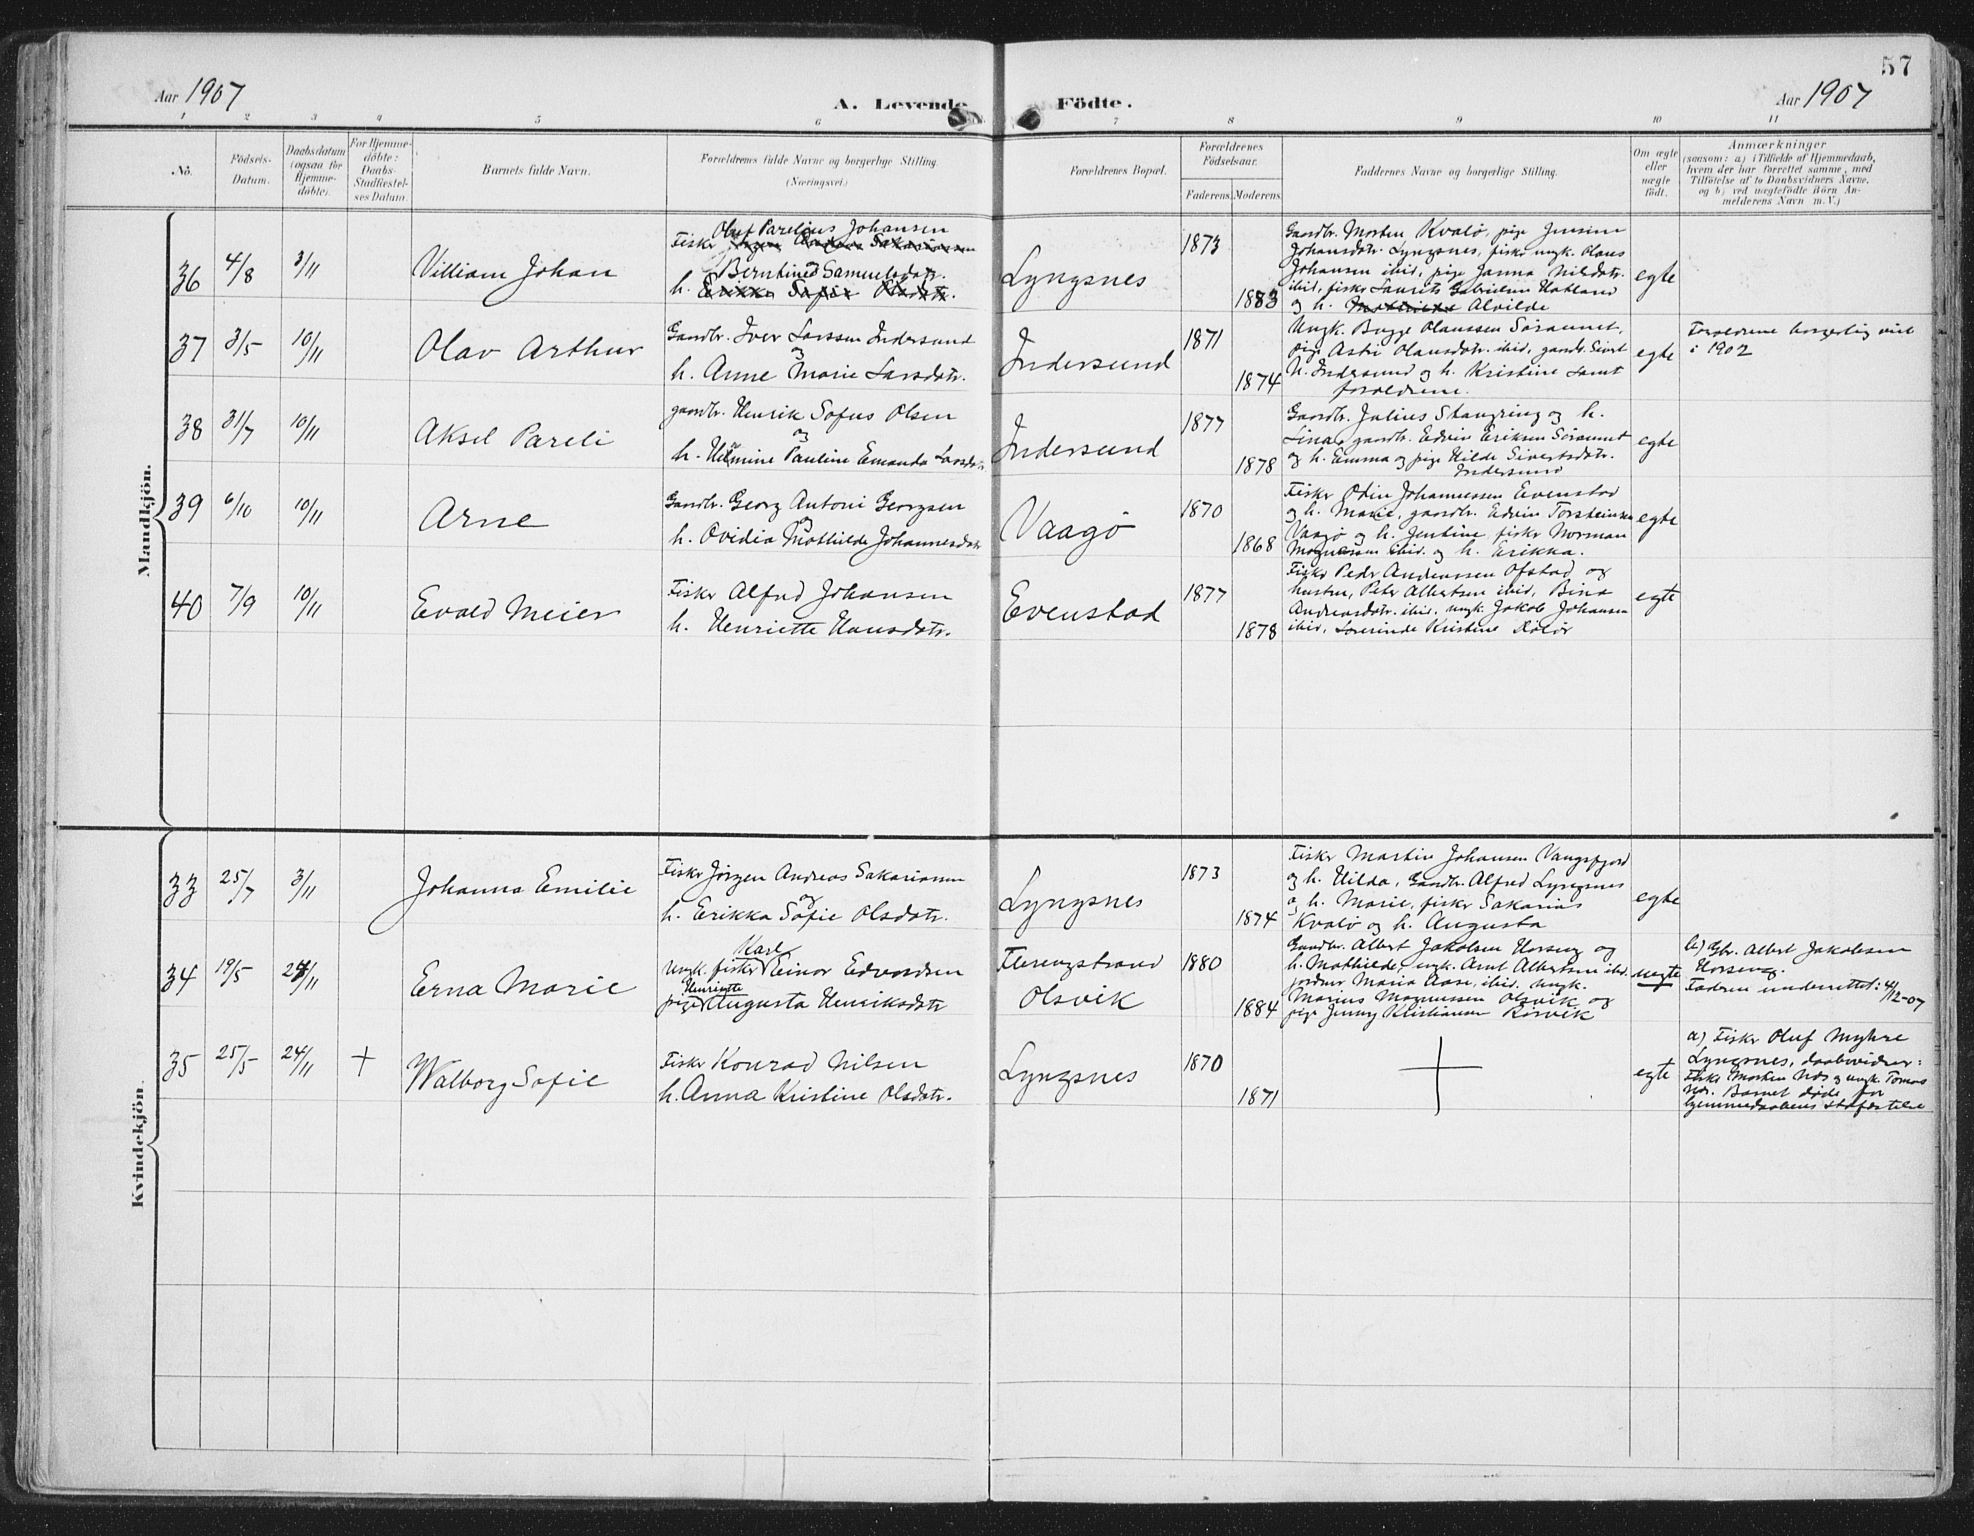 57
Aar 1907
A. Levende
Födte.
Aar 1907
1 2 3 4 5 6 7 8 9 10 11
No.
Födsels-
Datum.
Daabsdatum
(ogsaa for
Hjemme-
döbte).
For Hjemme-
döbte:
Daabs-
Stadfæstel-
ses Datum.
Barnets fulde Navn.
Forældrenes fulde Navne og borgerlige Stilling.
(Næringsvei.)
Forældrenes Bopæl.
Forældrenes
Födselsaar.
Faderens. Moderens.
Faddernes Navne og borgerlige Stilling.
Om ægte
eller
uægte
födt.
Anmærkninger
(saasom: a) i Tilfælde af Hjemmedaab,
hvem der har forrettet samme, med
Tilföielse af to Daabsvidners Navne,
og b) ved uægtefödte Börn An-
melderens Navn m.V.)
Mandkjön.
36 4/8 3/11 Villiam Johan
Oluf Parelius Johansen
Fisker
og
Berntine Samuelsdatr.
h. Erikka Sofie Olsdatr.
Lyngsnes
1873
1883
Gaardbr. Morten Kvalö, pige Jensine
Johansdtr. Lyngsnes, fisker ungk. Olaus
Johansen ibid, pige Janna Nilsdtr.
ibid, fisker Laurits Gabrielsen Hatland
og h. Alvilde
egte
37 3/5 10/11 Olav Arthur
Gaardbr. Iver Larssen Indersund
og
h. Anne Marie Larsdatr.
Indersund
1871
1874
Ungk. Bugge Olaussen Söraunet,
pige Astri Olausdatr. ibid, gaardbr. Sivert
N. Indersund og h. Kristine samt
forældrene.
egte
Forældrene borgerlig viet
i 1902
38 31/7 10/11 Aksel Pareli
gaardbr. Henrik Sofus Olsen
og
h. Helmine Pauline Emanda Larsdatr
Indersund
1877
1878
Gaardbr. Julius Stangring og h.
Lina, gaardbr. Edvin Eriksen Söraunet
og h. Emma og pige Hilda Sivertsdatr.
Indersund
egte
39 6/10 10/11 Arne
Gaardbr. Georg Antoni Georgsen
og
h. Ovidia Mathilde Johannesdatr
Vaagö
1870
1868
Fisker Odin Johannessen Evenstad
og h. Marie, gaardbr. Edvin Torsteinsen
Vaagö og h. Jentine, fisker Norman
Magnussen ibid. og h. Erikka.
egte
40 7/9 10/11 Evald Meier
Fisker Alfred Johansen
h. Henriette Hansdatr.
Evenstad
1877
1878
Fisker Peder Andreassen Ofstad og
hustru, Peter Albertsen ibid, Bina
Andreasdatr. ibid, ungk. Jakob Johansen
ibid, Kristine
egte
Kvindekjön.
33 25/7 3/11 Johanna Emilie
Fisker Jörgen Andreas Sakariassen
og
h. Erikka Sofie Olsdatr.
Lyngsnes
1873
1874
Fisker Martin Johansen Vangsfjord
og h. Hilda, Gaardbr. Alfred Lyngsnes
og h. Marie, fisker Sakarias
Kvalö og h. Augusta
egte
34 19/5 24/11 Erna Marie
Karl
ungk. fisker Einar Edvardsen
Henriette
pige Augusta Henriksdatr
Flerengstrand
Olsvik
1880
1884
Gaardbr. Albert Jakobsen Horseng og
h. Mathilde, ungk. Arnt Albertsen ibid.
jordmr. Maria Aase, ibid. ungk.
Marius Magnussen Olsvik og
pige Jenny Kristiansen Rörvik
uegte
b) Gbr. Albert Jakobsen
Horseng.
Faderen underrettet: 4/12-07
35 25/5 24/11 + Walborg Sofie
Fisker Konrad Nilsen
h. Anna Kristine Olsdatr.
Lyngsnes
1870
1871
+
egte
a) Fisker Oluf Myhre
Lyngsnes, daabsvidner:
Fisker Morten Næs og ungk. Tomas
Næs. Barnet döde för
hjemmedaabens stadfæstelse